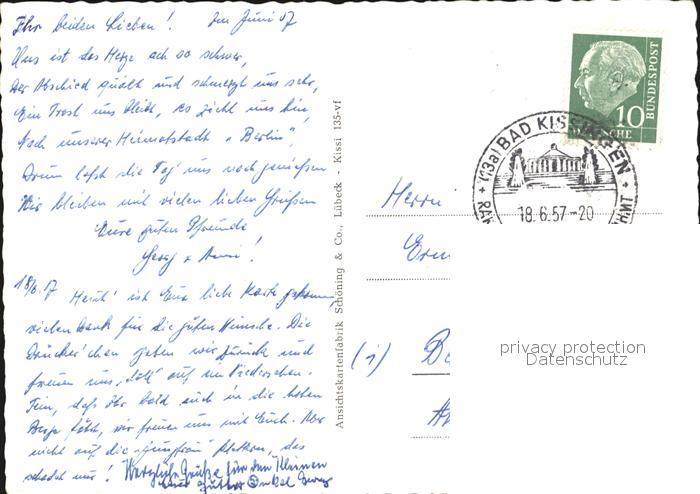 Ihr beiden Lieben! Im Juni 57
Uns ist das Herze ach so schwer,
Der Abschied quält und schmerzt uns sehr,
Ein Trost uns bleibt, es zieht uns hin,
Nach unserer Heimatstadt „Berlin",
Drum laßt die Tag' uns noch genießen
Wir bleiben mit vielen lieben Grüßen
Eure guten Freunde
Georg u.
18/6.57 Heut' ist Eure liebe Karte gekommen,
vielen Dank für die guten Wünsche. Die
Drückerchen geben wir zurück und
freuen uns, auf ein Wiedersehen.
Fein, daß Ihr bald auch in die hohen
Berge fahrt, wir freuen uns mit Euch. Aber
nicht auf die „Jungfrau" klettern, das
schadet nur! Herzliche Grüße für den Kleinen
Onkel Georg
Ansichtskartenfabrik Schöning & Co., Lübeck - Kissi 135-vf
10
BUNDESPOST
(13a) BAD KISSINGEN
18.6.57-20
Herrn
(1)
privacy protection
Datenschutz